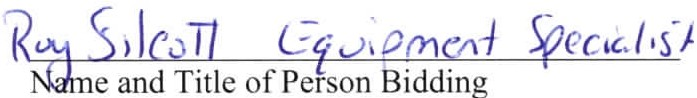 Roy Silcott Equipment Specialist
Name and Title of Person Bidding